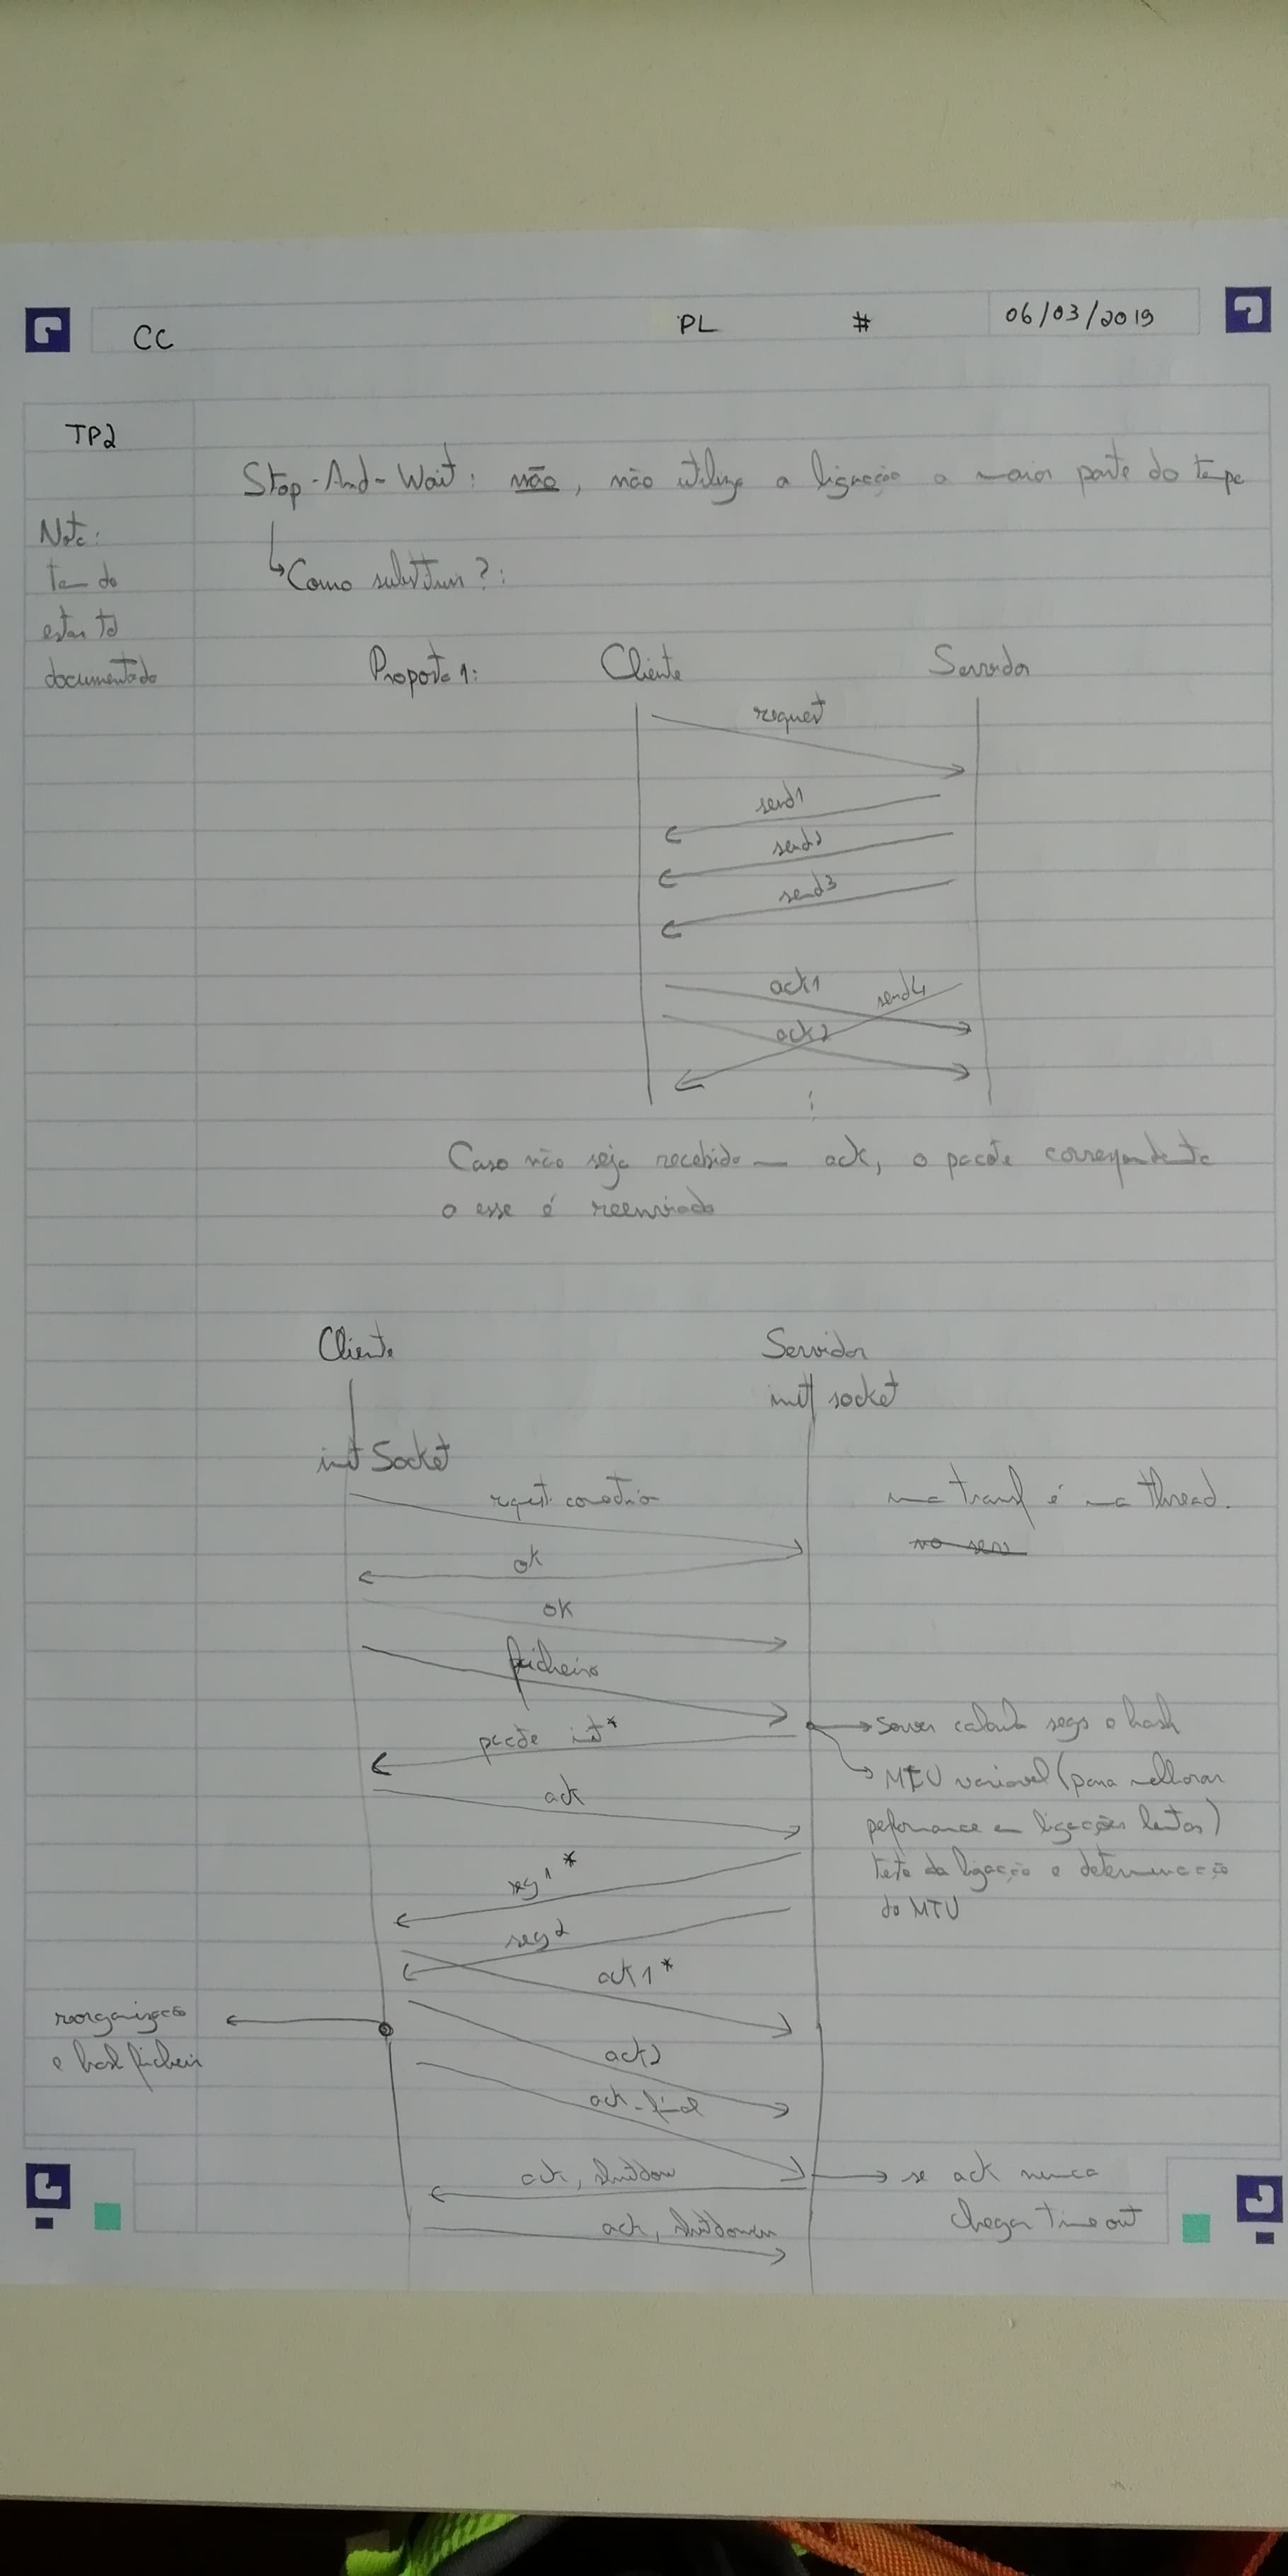 CC PL # 06/03/2019
TP2
Stop-And-Wait: não, não utiliza a ligação a maior parte do tempo
Nota:
tem de
estar td
documentado
Como substituir?:
Proposta 1: Cliente Servidor
request
send1
send2
send3
ack1 send4
ack2
Caso não seja recebido um ack, o pacote correspondente
a esse é reenviado
Cliente Servidor
init socket
init Socket
request conection uma transf é uma thread.
no serv
ok
ok
ficheiro
pacote init* Server calcula segs e hash
MTU variavel (para melhorar
ack peformance em ligações lentas)
seg1* teste da ligação e determinação
do MTU
seg2
ack1*
reorganização
e hash ficheiro
ack2
ack-final
ack, shutdow se ack nunca
chegar timeout
ack, shutdown